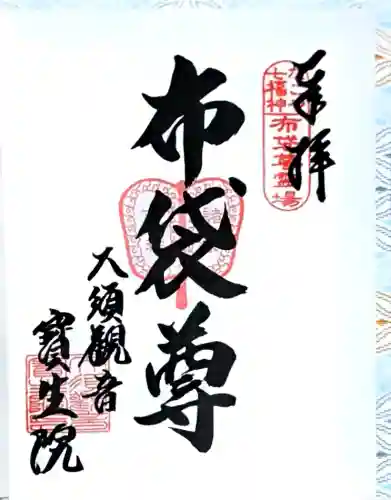 奉拝
七福神
布袋尊霊場
布袋尊
大須観音
寶生院